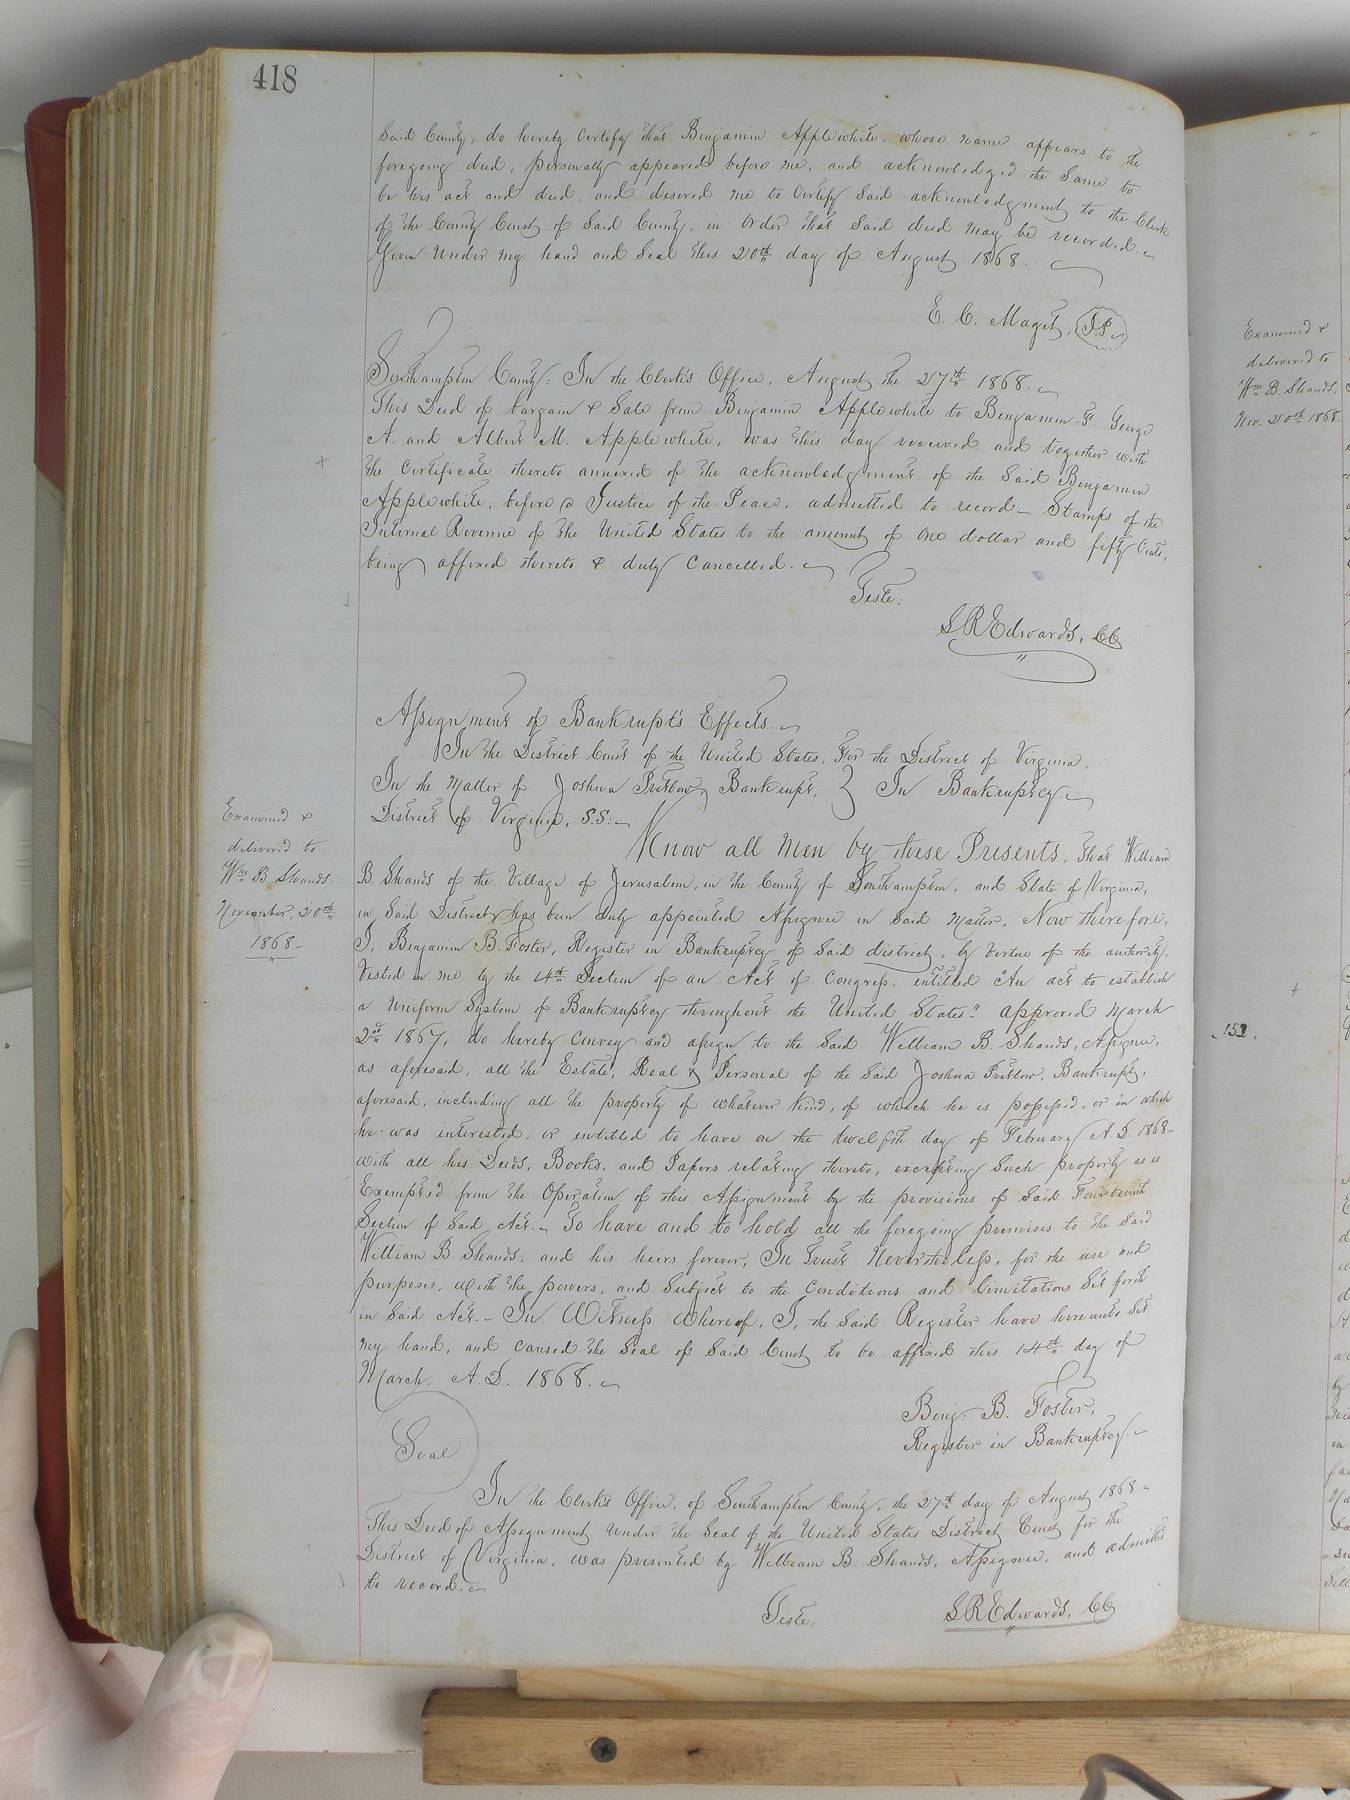 418
Said County, do hereby Certify that Benjamin Applewhite, whose name appears to the
foregoing deed, personally appeared before me, and acknowledged the Same to
be his act and deed, and desired me to Certify Said acknowledgment to the Clerk
of the County Court of Said County, in order that Said deed may be recorded.
Given under my hand and Seal this 20th day of August 1868.
E. C. Maget, J.P.
Southampton County: In the Clerk's Office, August the 27th 1868.
This Deed of bargain & Sale from Benjamin Applewhite to Benjamin F. George
A. and Albert M. Applewhite, was this day received and together with
the Certificate thereto annexed of the acknowledgment of the Said Benjamin
Applewhite, before a Justice of the Peace, admitted to record — Stamps of the
Internal Revenue of the United States to the amount of one dollar and fifty Cents,
being affixed thereto & duly Cancelled.
Teste:
L R Edwards, CC
Assignment of Bankrupt's Effects.
In the District Court of the United States, For the District of Virginia.
In the Matter of Joshua Pretlow, Bankrupt, } In Bankruptcy.
District of Virginia, S.S:
Know all Men by these Presents, That William
B. Shands of the Village of Jerusalem, in the County of Southampton, and State of Virginia,
in Said District has been duly appointed Assignee in Said Matter, Now therefore,
I, Benjamin B. Foster, Register in Bankruptcy of Said district, by Virtue of the authority,
Vested in me by the 14th Section of an Act of Congress, entitled "An act to establish
a Uniform System of Bankruptcy throughout the United States" approved March
2nd 1867, do hereby Convey and assign to the Said William B. Shands, Assignee,
as aforesaid, all the Estate, Real & Personal of the Said Joshua Pretlow, Bankrupt,
aforesaid, including all the property of whatever kind, of which he is possessed, or in which
he was interested, or entitled to have on the twelfth day of February A.D. 1868
with all his Deeds, Books, and Papers relating thereto, excepting Such property as is
Exempted from the Operation of this Assignment by the provisions of Said Fourteenth
Section of Said Act. To have and to hold all the foregoing premises to the Said
William B. Shands, and his heirs forever, In Trust Nevertheless, for the use and
purposes, with the powers, and Subject to the Conditions and limitations Set forth
in Said Act. - In Witness whereof, I, the Said Register have hereunto Set
my hand, and Caused the Seal of Said Court to be affixed this 14th day of
March. A.D. 1868.
Benj. B. Foster,
Register in Bankruptcy.
Seal
In the Clerk's Office, of Southampton County, the 27th day of August 1868
This Deed of Assignment under the Seal of the United States District Court for the
District of Virginia, was presented by William B. Shands, Assignee, and admitted
to record.
Teste:
L R Edwards, CC
Examined &
delivered to
Wm B Shands.
November, 20th
1868
Examined &
delivered to
Wm B. Shands,
Nov. 20th 1868
152.